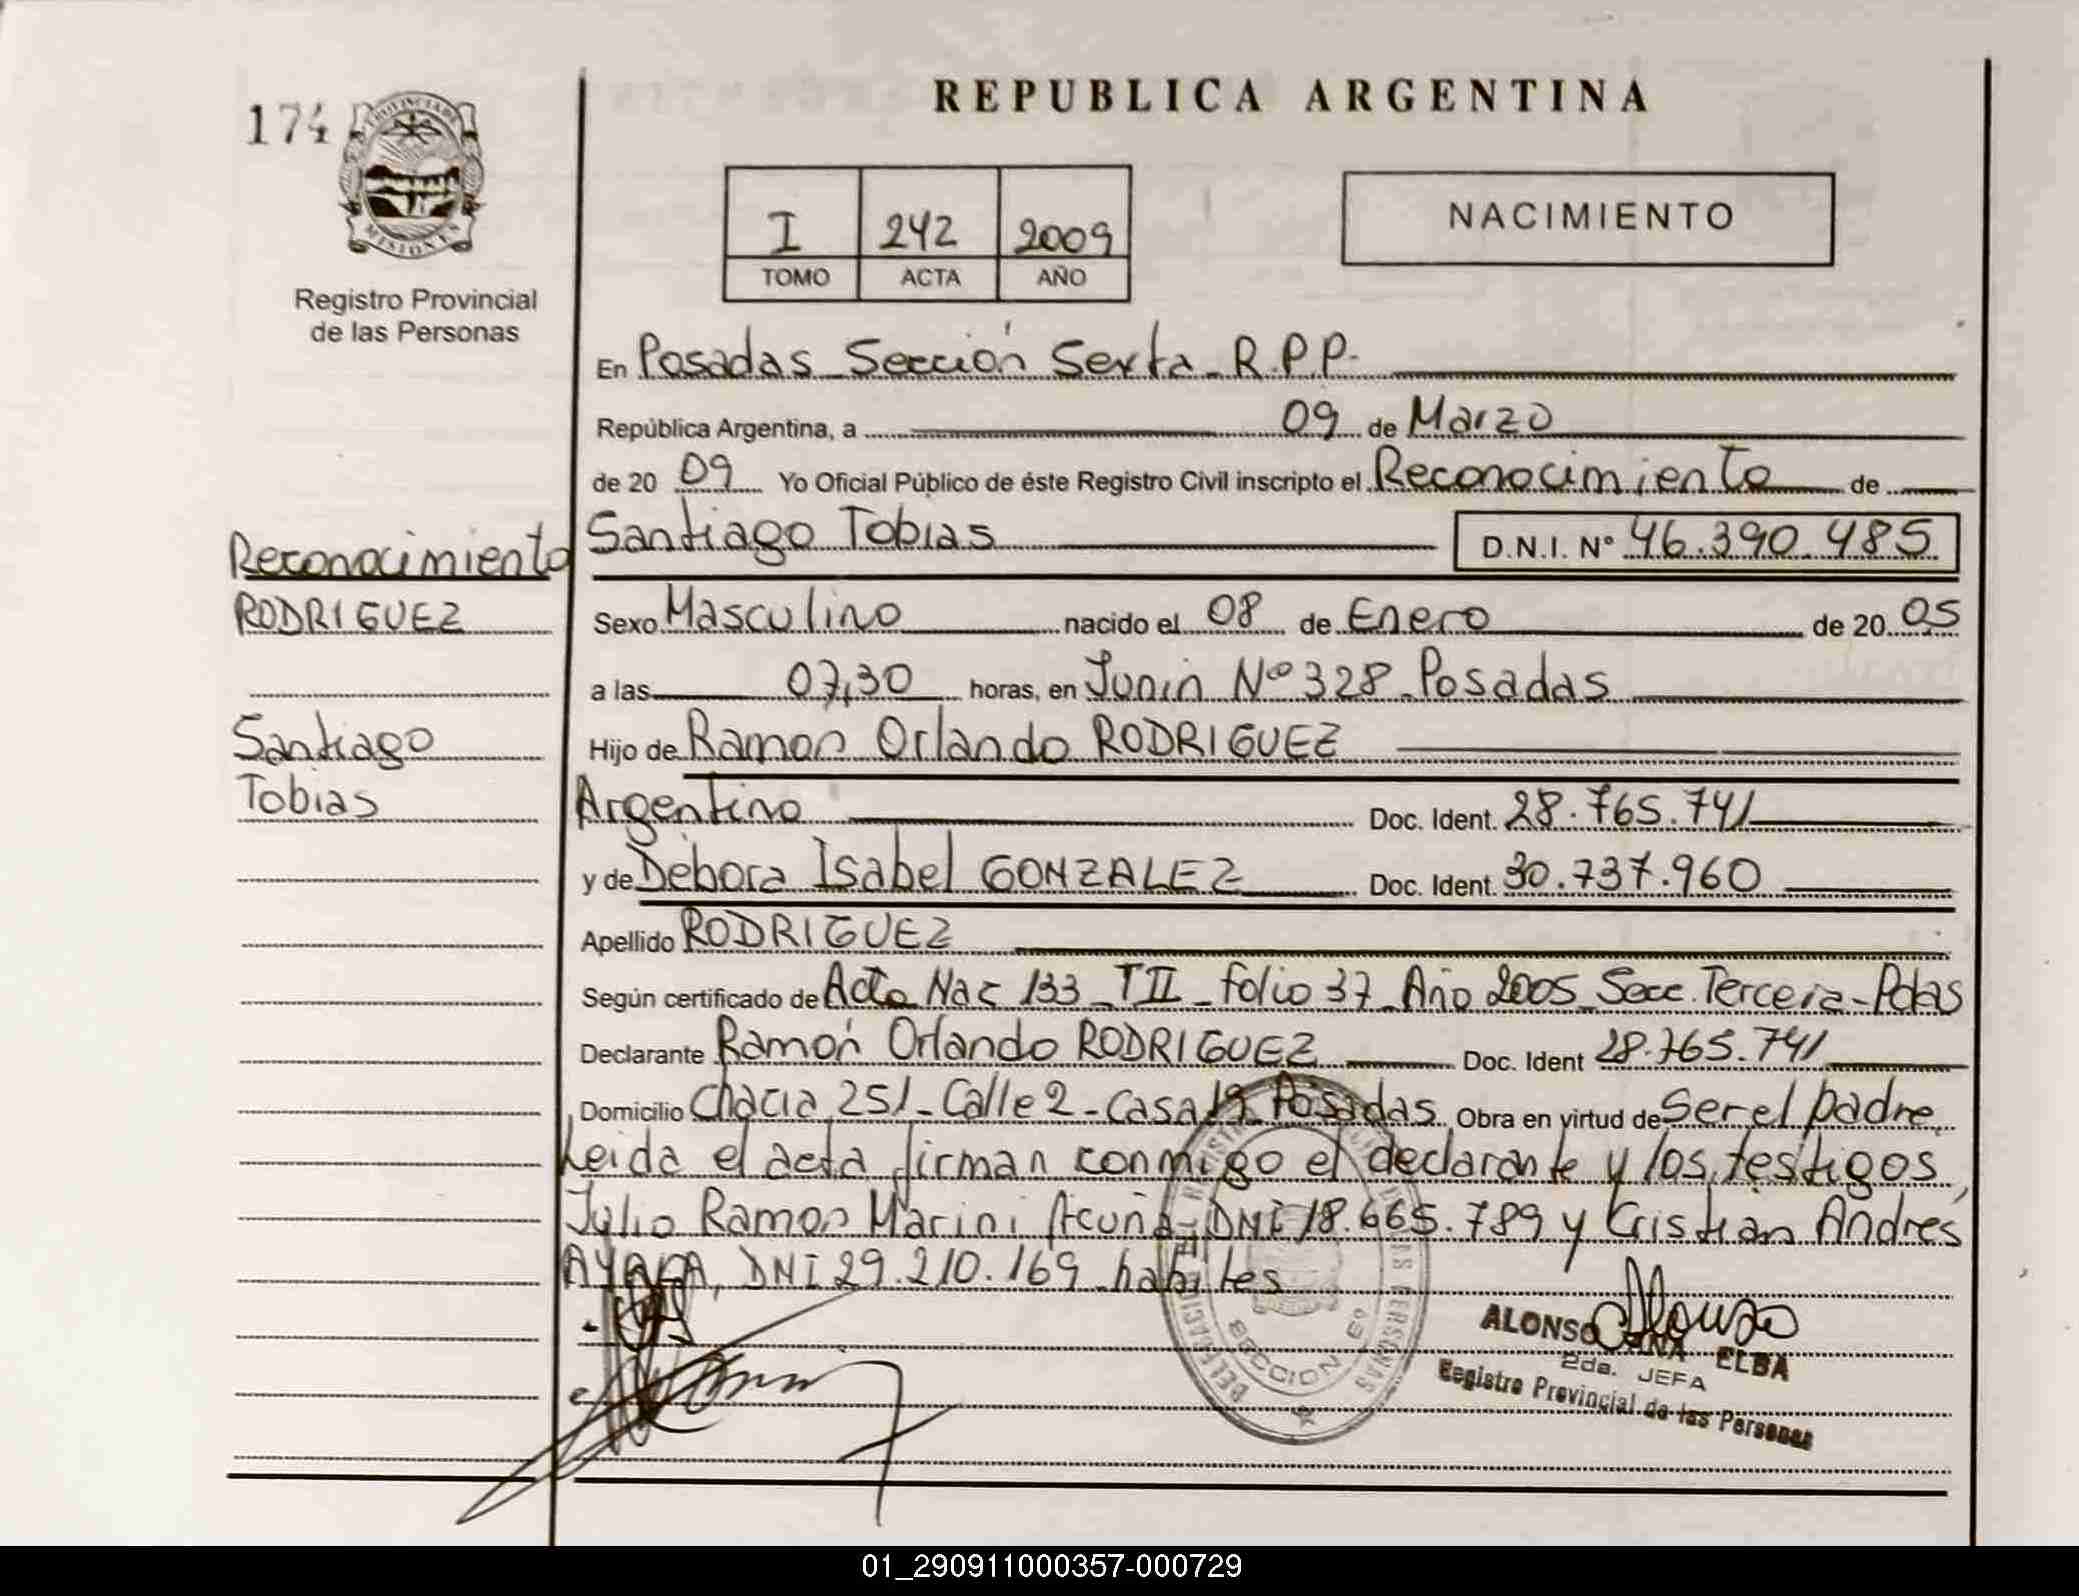 174
PROVINCIA DE
MISIONES
Registro Provincial
de las Personas
REPUBLICA ARGENTINA
I 242 2009
TOMO ACTA AÑO
NACIMIENTO
En Posadas Sección Sexta R.P.P.
República Argentina, a 09 de Marzo
de 20 09 Yo Oficial Público de éste Registro Civil inscripto el Reconocimiento de
Santiago Tobias D.N.I. Nº 46.390.485
Reconocimiento
RODRIGUEZ
Santiago
Tobias
Sexo Masculino nacido el 08 de Enero de 20 05
a las 07,30 horas, en Junin Nº 328 Posadas
Hijo de Ramon Orlando RODRIGUEZ
Argentino Doc. Ident. 28.765.741
y de Debora Isabel GONZALEZ Doc. Ident. 30.737.960
Apellido RODRIGUEZ
Según certificado de Acta Nac 133 TII folio 37 Año 2005 Secc. Tercera - Pdas
Declarante Ramón Orlando RODRIGUEZ Doc. Ident 28.765.741
Domicilio Chacra 251 - Calle 2 - Casa 19 Posadas Obra en virtud de Ser el padre
Leida el acta firman conmigo el declarante y los testigos,
Julio Ramon Marini Acuña, DNI 18.665.789 y Cristian Andrés
AYALA, DNI 29.210.169 habiles
SECCION 6º
Alonso
ALONSO ANA ELBA
2da. JEFA
Registro Provincial de las Personas
01_290911000357-000729